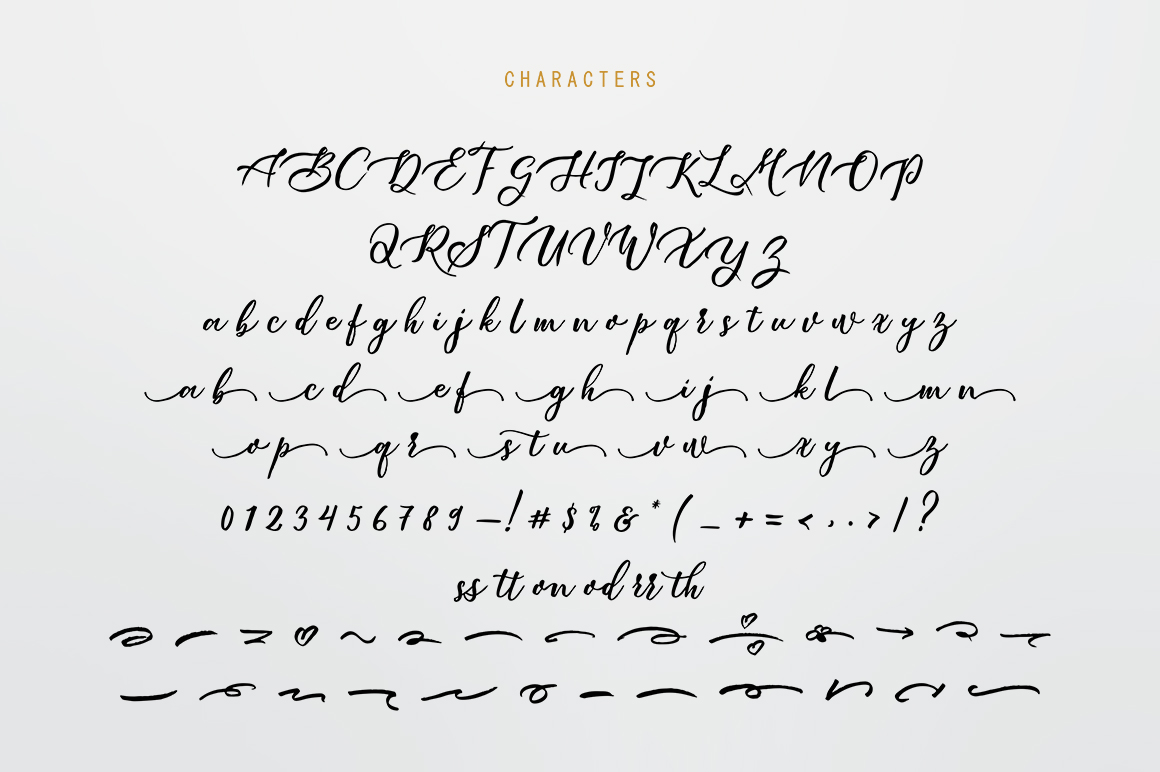 CHARACTERS
ABCDEFGHIJKLMNOP
QRSTUVWXYZ
a b c d e f g h i j k l m n o p q r s t u v w x y z
a b c d e f g h i j k l m n
o p q r s t u v w x y z
0 1 2 3 4 5 6 7 8 9 – ! # $ % & * ( _ + = < , . . > / ?
ss tt on od rr th